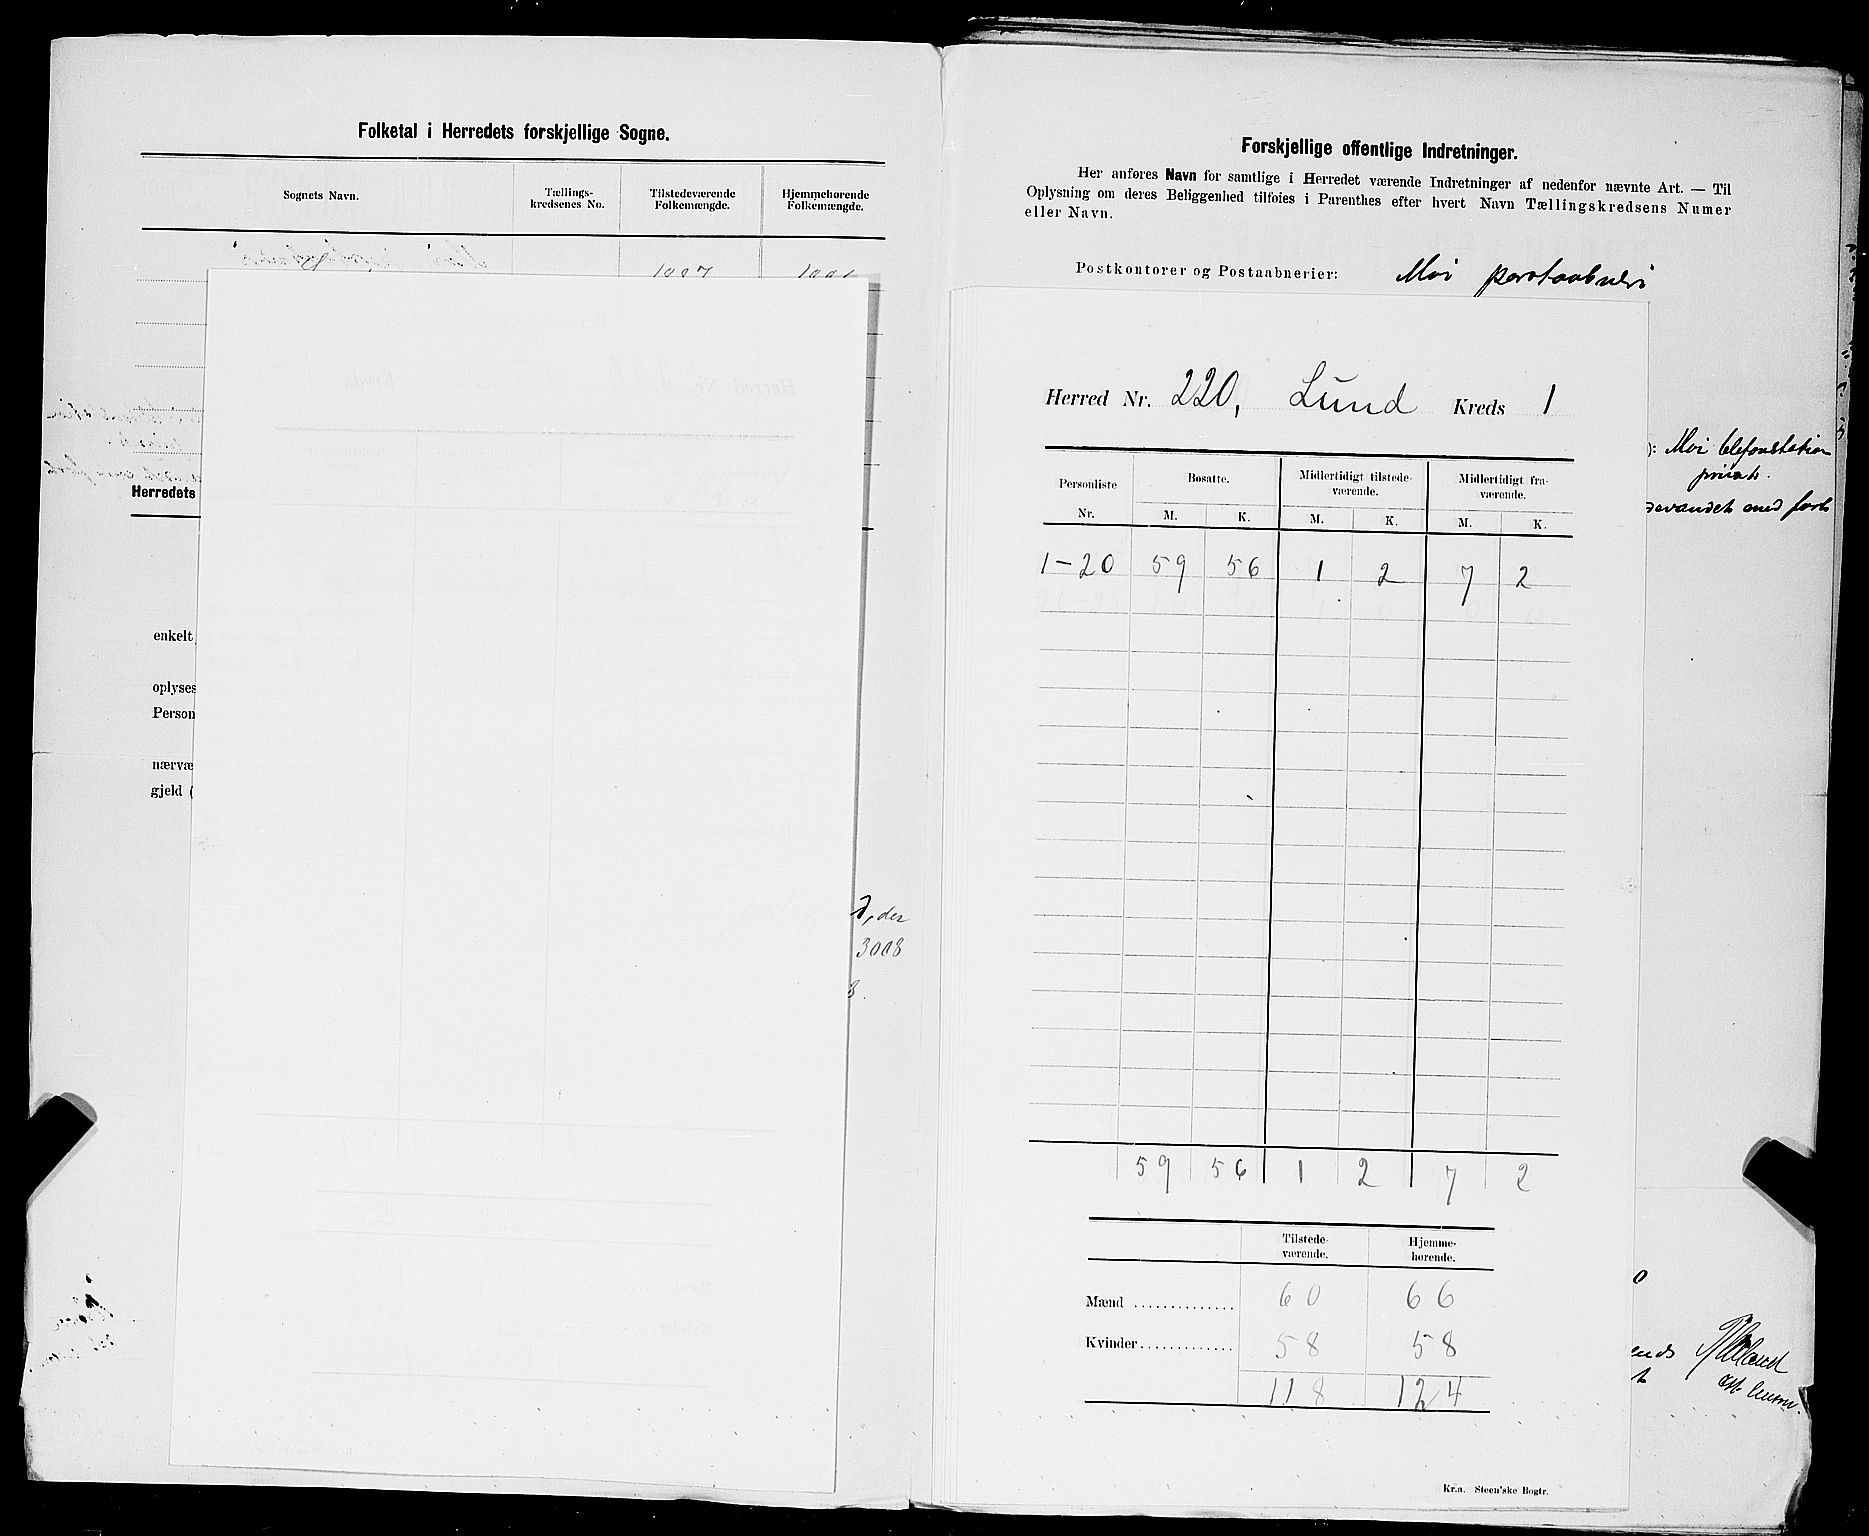 Folketal i Herredets forskjellige Sogne.
Sognets Navn.
Tællings-
kredsenes No.
Tilstedeværende
Folkemængde.
Hjemmehørende
Folkemængde.
Herredets
enkelt
oplyses
Person
nærvæ
gjeld (
d, der
3008
8.
Forskjellige offentlige Indretninger.
Her anføres Navn for samtlige i Herredet værende Indretninger af nedenfor nævnte Art. — Til
Oplysning om deres Beliggenhed tilføies i Parenthes efter hvert Navn Tællingskredsens Numer
eller Navn.
Postkontorer og Postaabnerier: Moi postaabneri
Herred Nr. 220, Lund Kreds 1
Personliste
Nr.
Bosatte.
Midlertidigt tilstede-
værende.
Midlertidigt fra-
værende.
M. K. M. K. M. K.
1-20 59 56 1 2 7 2
59 56 1 2 7 2
Tilstede-
værende.
Hjemme-
hørende.
Mænd .............. 60 66
Kvinder ............. 58 58
118 124
Kr.a. Steen'ske Bogtr.
): Moi telefonstation
privat.
med